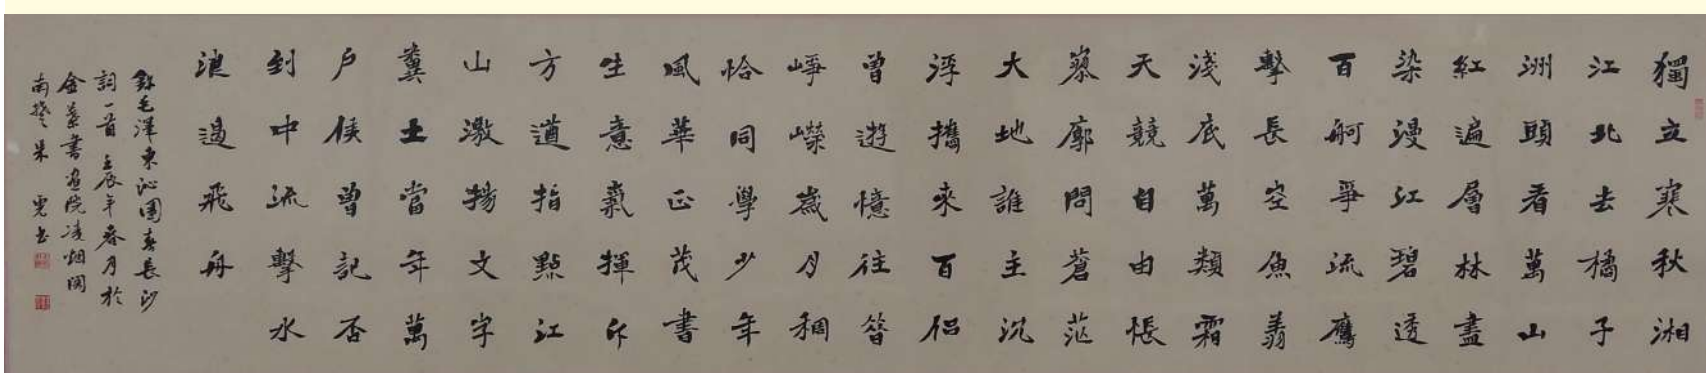 獨立寒秋湘
江北去橘子
洲頭看萬山
紅遍層林盡
染漫江碧透
百舸爭流鷹
擊長空魚翔
淺底萬類霜
天競自由悵
寥廓問蒼茫
大地誰主沉
浮攜來百侶
曾遊憶往昔
崢嶸歲月稠
恰同學少年
風華正茂書
生意氣揮斥
方遒指點江
山激揚文字
糞土當年萬
户侯曾記否
到中流擊水
浪遏飛舟
錄毛澤東沁園春長沙
詞一首壬辰年春月於
金書畫院凌烟閣
南書